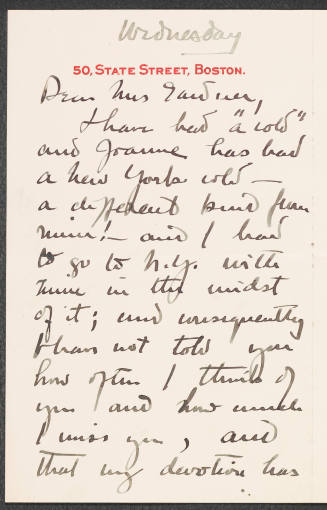 Wednesday
50, STATE STREET, BOSTON.
Dear Mrs Gardner,
I have had "a cold"
and Joanne has had
a New York cold —
a different kind from
mine! — and I had
to go to N.Y. with
mine in the midst
of it; and consequently
I have not told you
how often I think of
you and how much
I miss you, and
that my devotion has